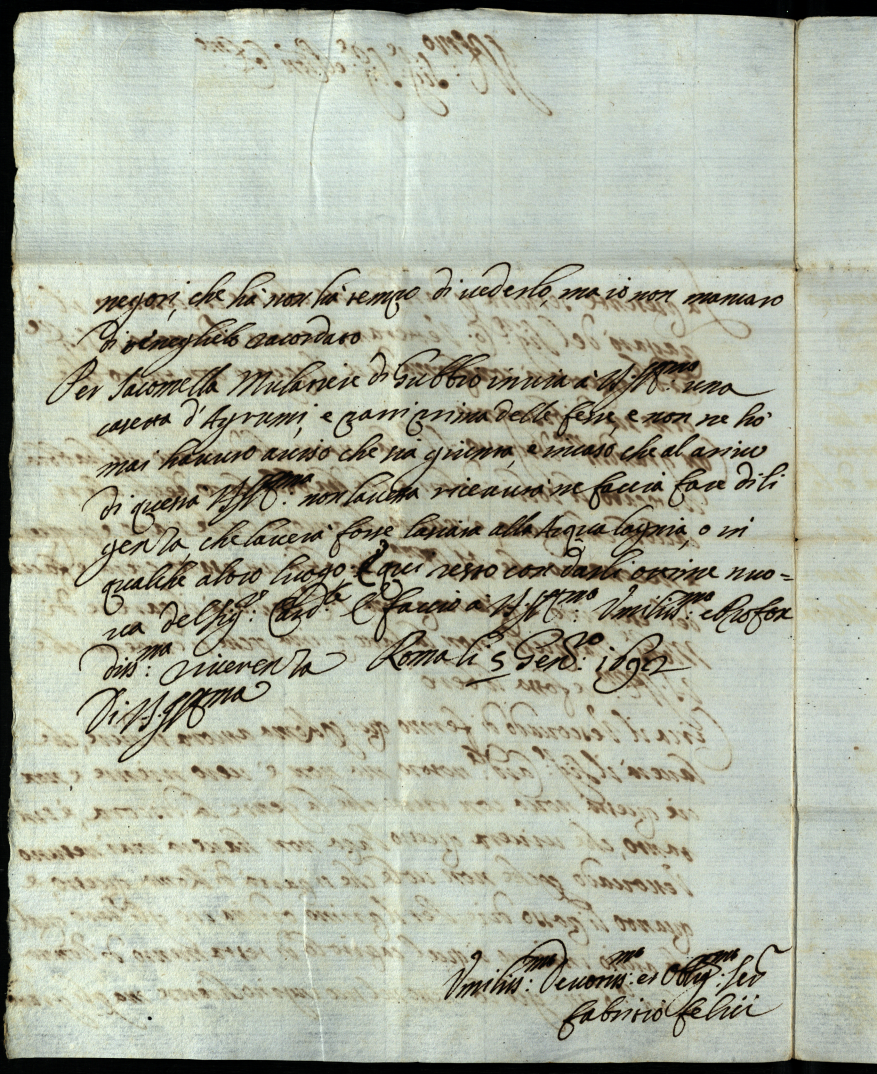 negotij, che hà non hà tempo di vederlo, ma io non mancaro
di raccordarlo
Per Jacomella Mulattiere di Gubbio inviai à V.S. Ill.ma una
cassetta d'Agrumi, e partì prima delle feste e non ne hò
mai havuto aviso che sia giunta, e in caso che al arivo
di questa V.S. Ill.ma non la haverà ricevuta ne faccia fare dili
genza, che la haverà forse lassata alla Aqualagnia, o in
qualche altro luogo. E qui resto con darli ottime nuo=
ve del Sig.r Card.le e faccio à V.S. Ill.ma Umiliss.ma e Profon
diss.ma riverenza Roma li 5 Gen.ro 1692
Di V.S. Ill.ma
Umiliss.mo Devotis.mo et Oblig.mo Ser.
Fabritio Felici